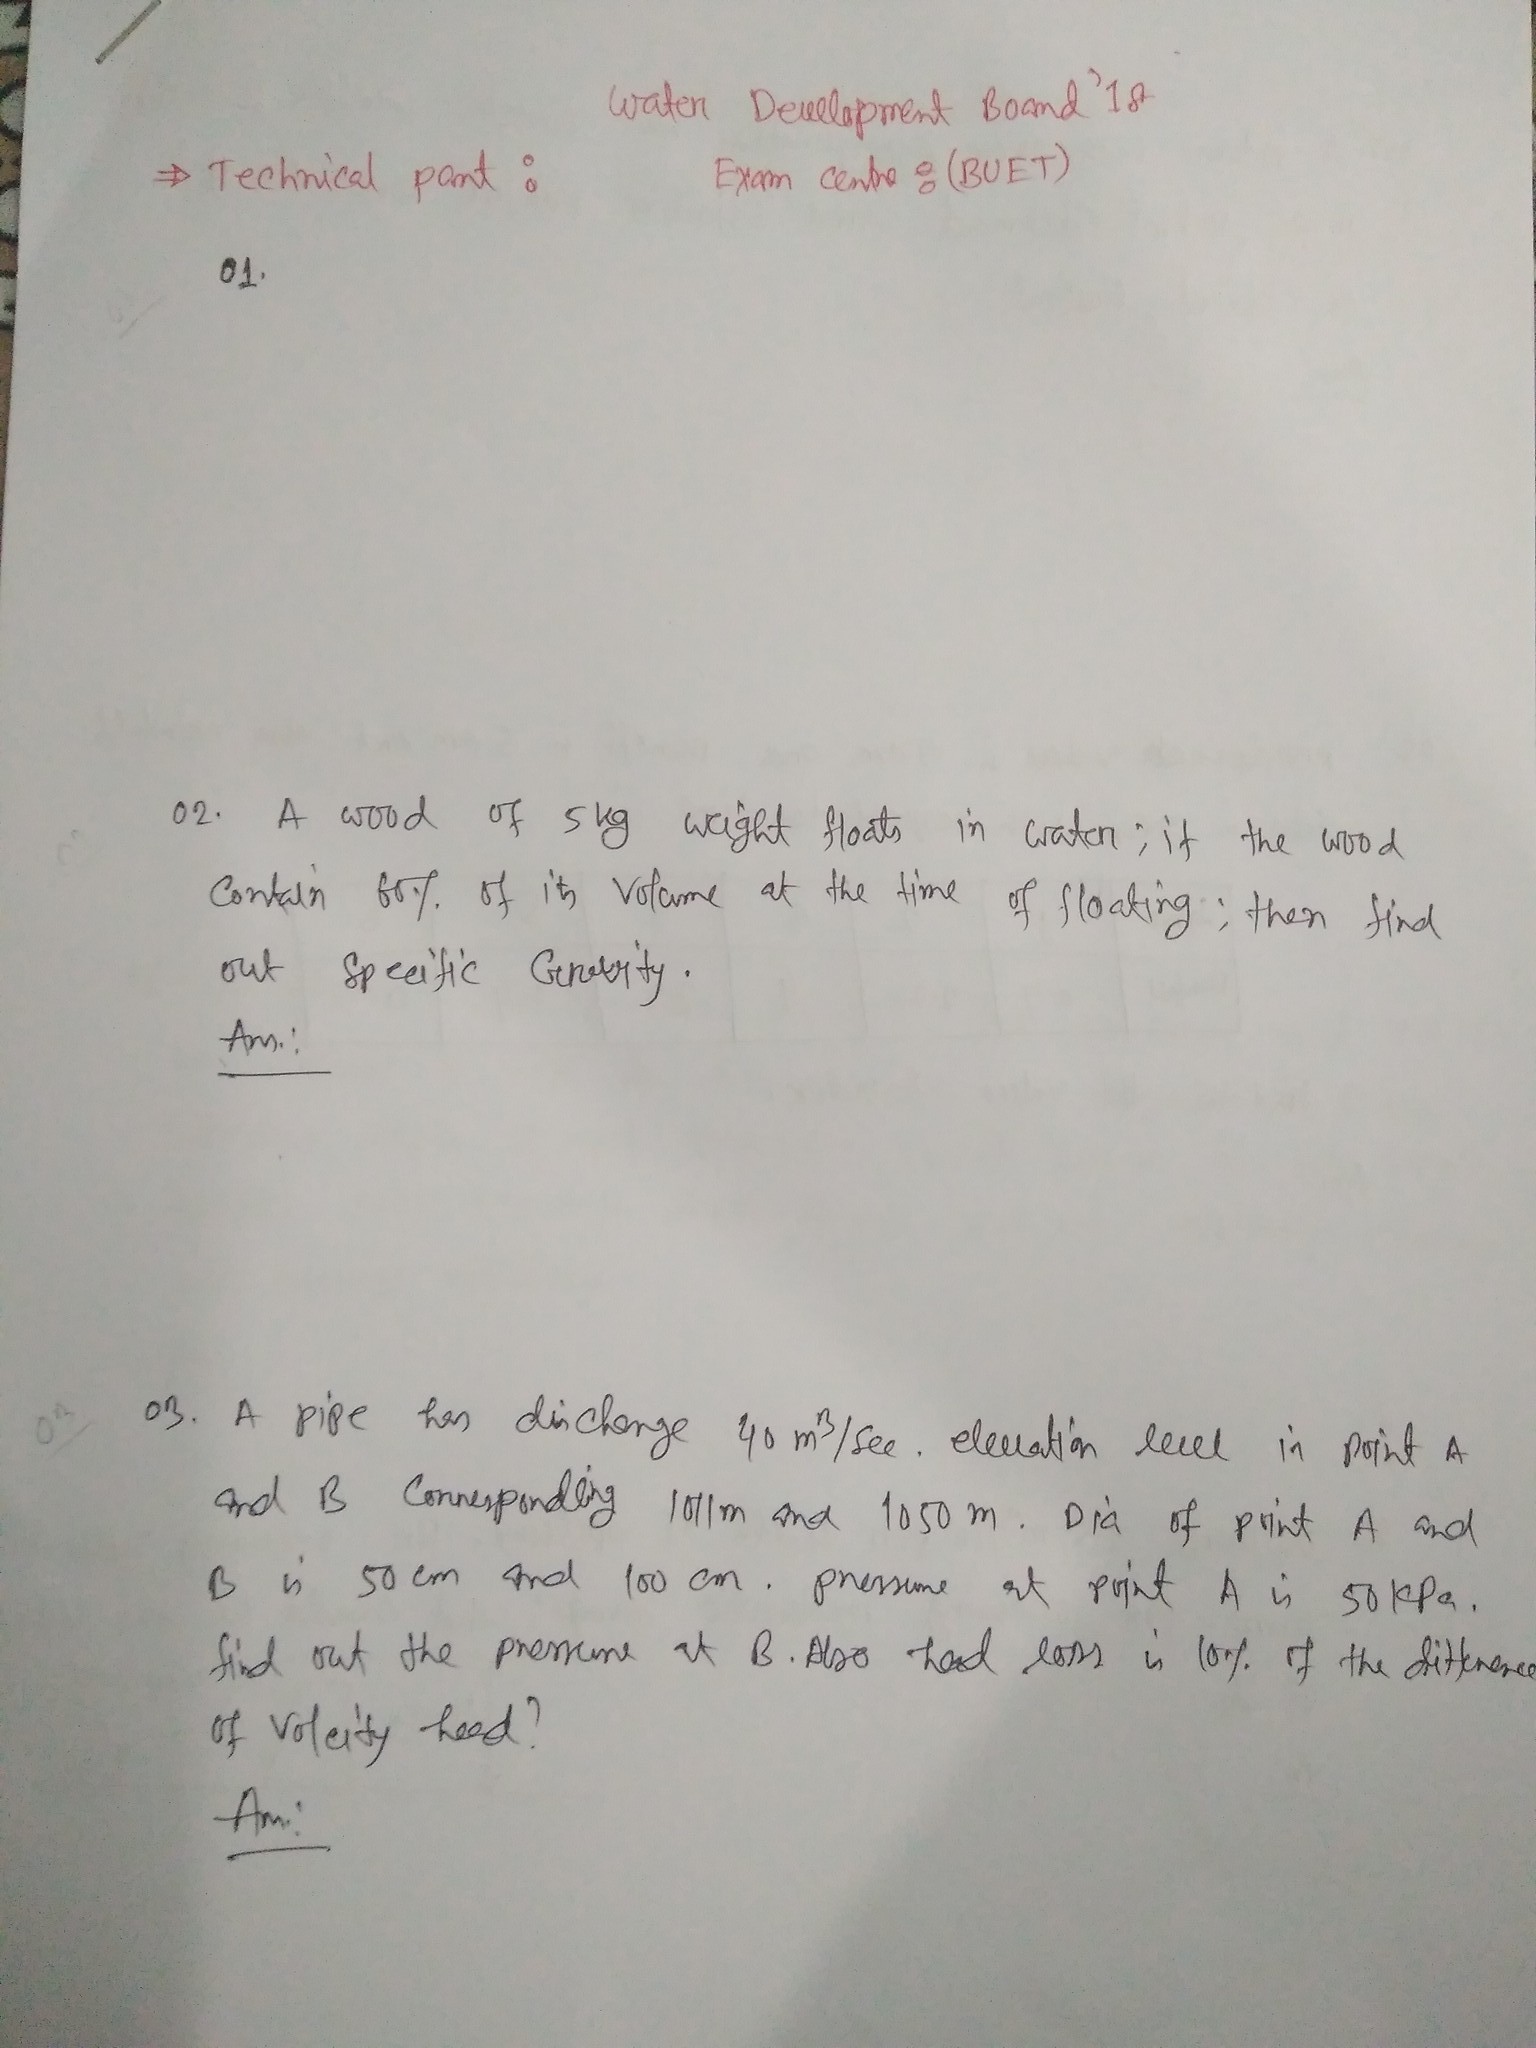 Water Development Board'18
⇒ Technical part : Exam centre : (BUET)
01.
02. A wood of 5kg weight floats in water; if the wood
Contain 60%. of its Volume at the time of floating; then find
out Specific Gravity.
Ans.:
03. A pipe has discharge 40 m³/sec. elevation level in point A
and B Corresponding 1011m and 1050 m. Dia of point A and
B is 50 cm and 100 cm. pressure at point A is 50 kPa.
find out the pressure at B. Also head loss is 10%. of the difference
of Volcity head?
Ans: